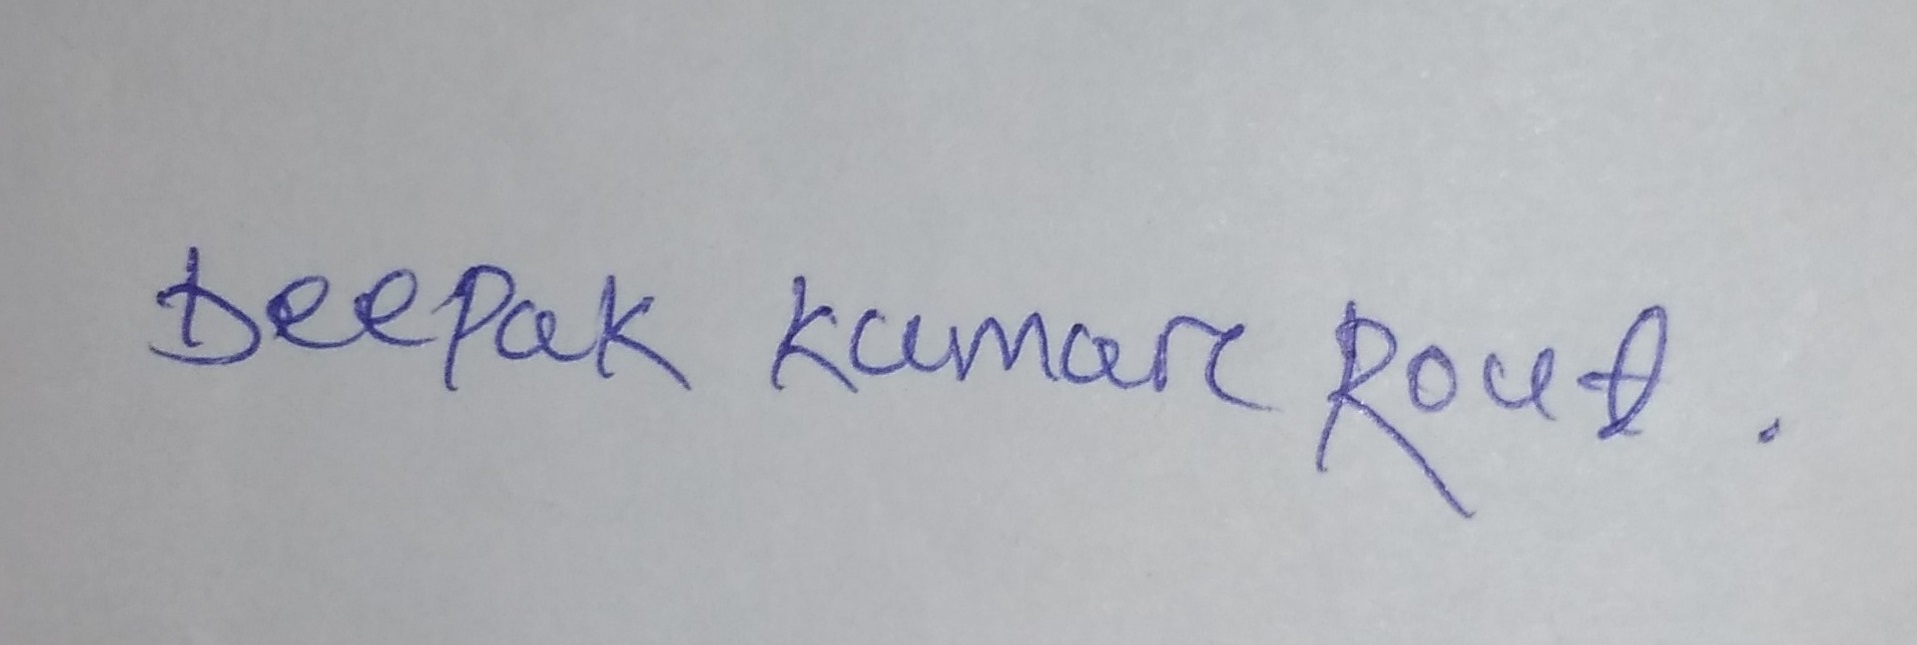 Deepak Kumar Rout.